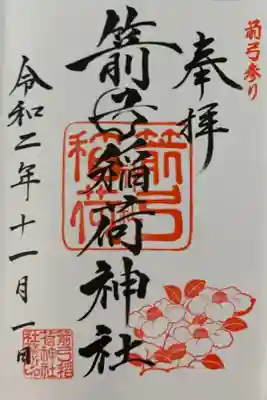 箭弓参り
奉拝
箭弓稲荷神社
箭弓
稲荷
令和二年十一月一日
箭弓稲
荷神社